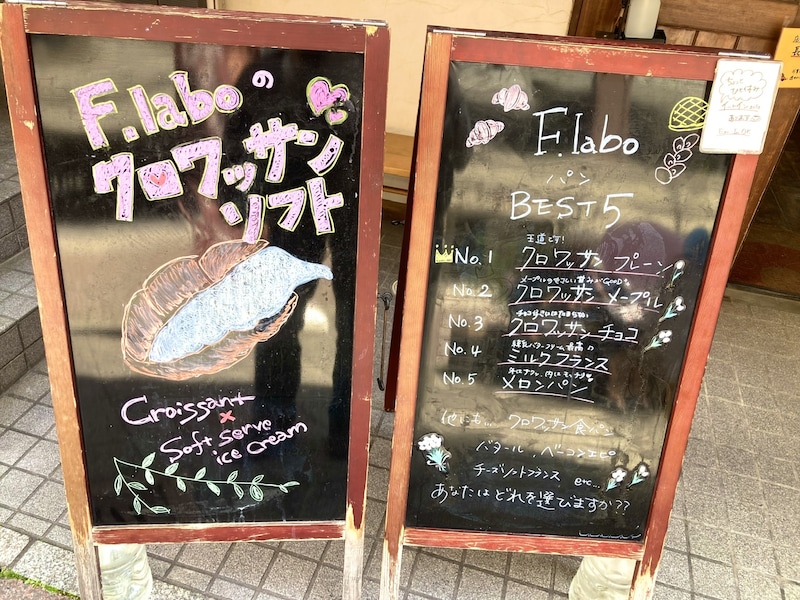 F.laboの
クロワッサン
ソフト
Croissant
×
Soft serve
ice cream
F.labo
パン
BEST 5
王道です!
No.1 クロワッサン プレーン
メープルのやさしい甘みがGOOD
No.2 クロワッサン メープル
No.3 クロワッサン チョコ
No.4 ミルクフランス
No.5 メロンパン
他にも… クロワッサン食パン
バタール、ベーコンエピ
チーズノットフランス
etc…
あなたはどれを選びますか??